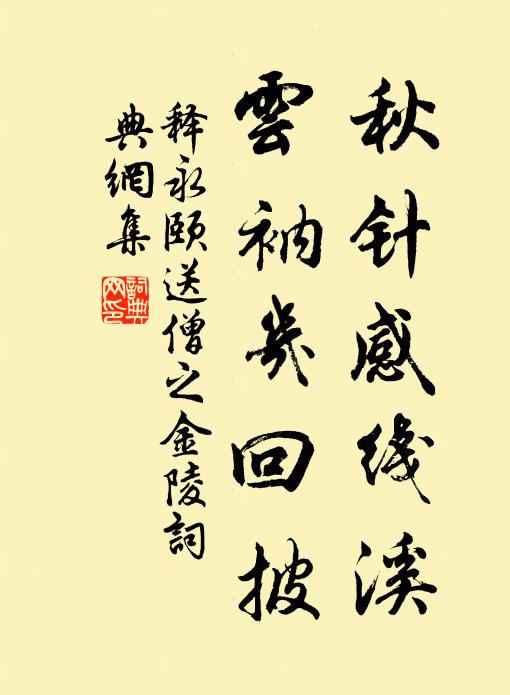 秋针感线溪
雲衲幾回披
释永颐送僧之金陵詞
典網集
詞典
网印